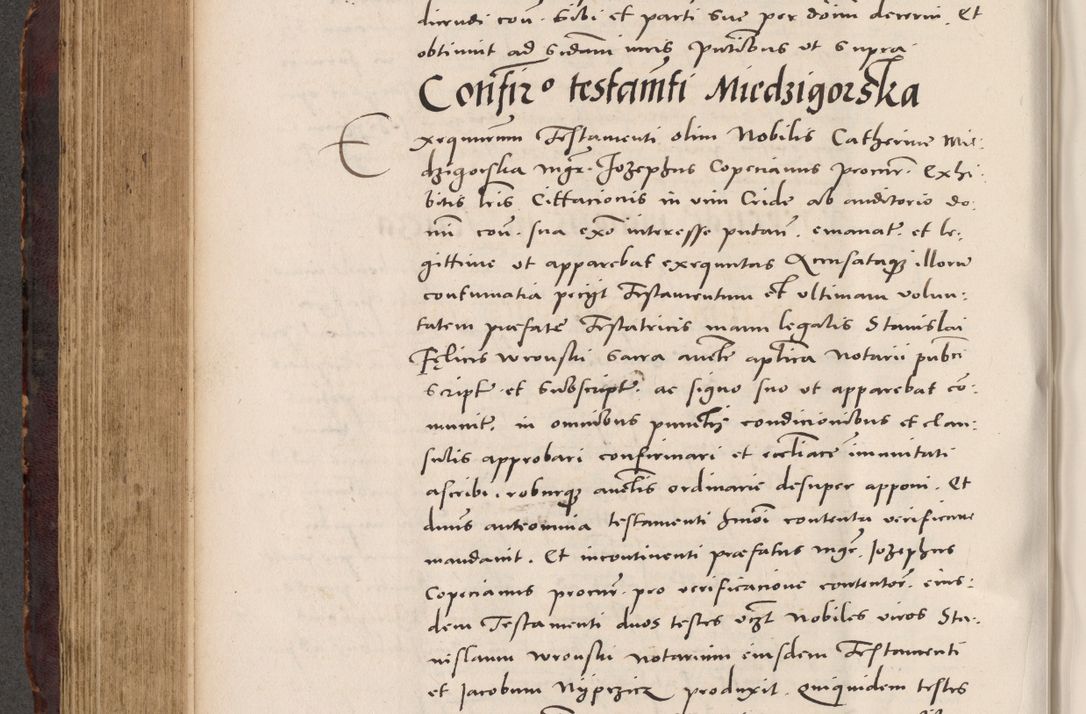 dicendi con. Sibi et parti sue per dōm decerni. Et
obtinuit ad Sedam iuris putibus ut supra
Confir° testamti Miedzigorska
Exequutum Testamenti olim Nobilis Catherine Mie-
dzigorska mgr. Jozephus Copecianus procur. Exhi-
bitis lris Cittacionis in vim Cride ab auditorio do-
mi con. sua exo interesse putan. emanat. et le-
gittime ut apparebat exequutas Accusataq illorum
contumatia perijt Testamentum et ultimam volun-
tatem præfate Testatricis manu legalis Stanislai
Felicis Wronski Sacra aucte aplica Notarii publci
Script. et Subscript. ac signo suo ut apparebat co-
munit. in omnibus punctis condicionibus et clau-
sulis approbari confirmari et eccliace imunitati
ascribi, roburq auctis ordinarie desuper apponi. Et
dnus anteomnia testamenti hmoi contenta verificare
mandavit. Et incontinenti præfatus mgr. Jozephus
Copecianus procur. pro verificacione contentor. eius-
dem Testamenti duos testes vizt Nobiles viros Sta-
nislaum Wronski notarium eiusdem Testamenti
et Jacobum produxit. Quiquidem testes